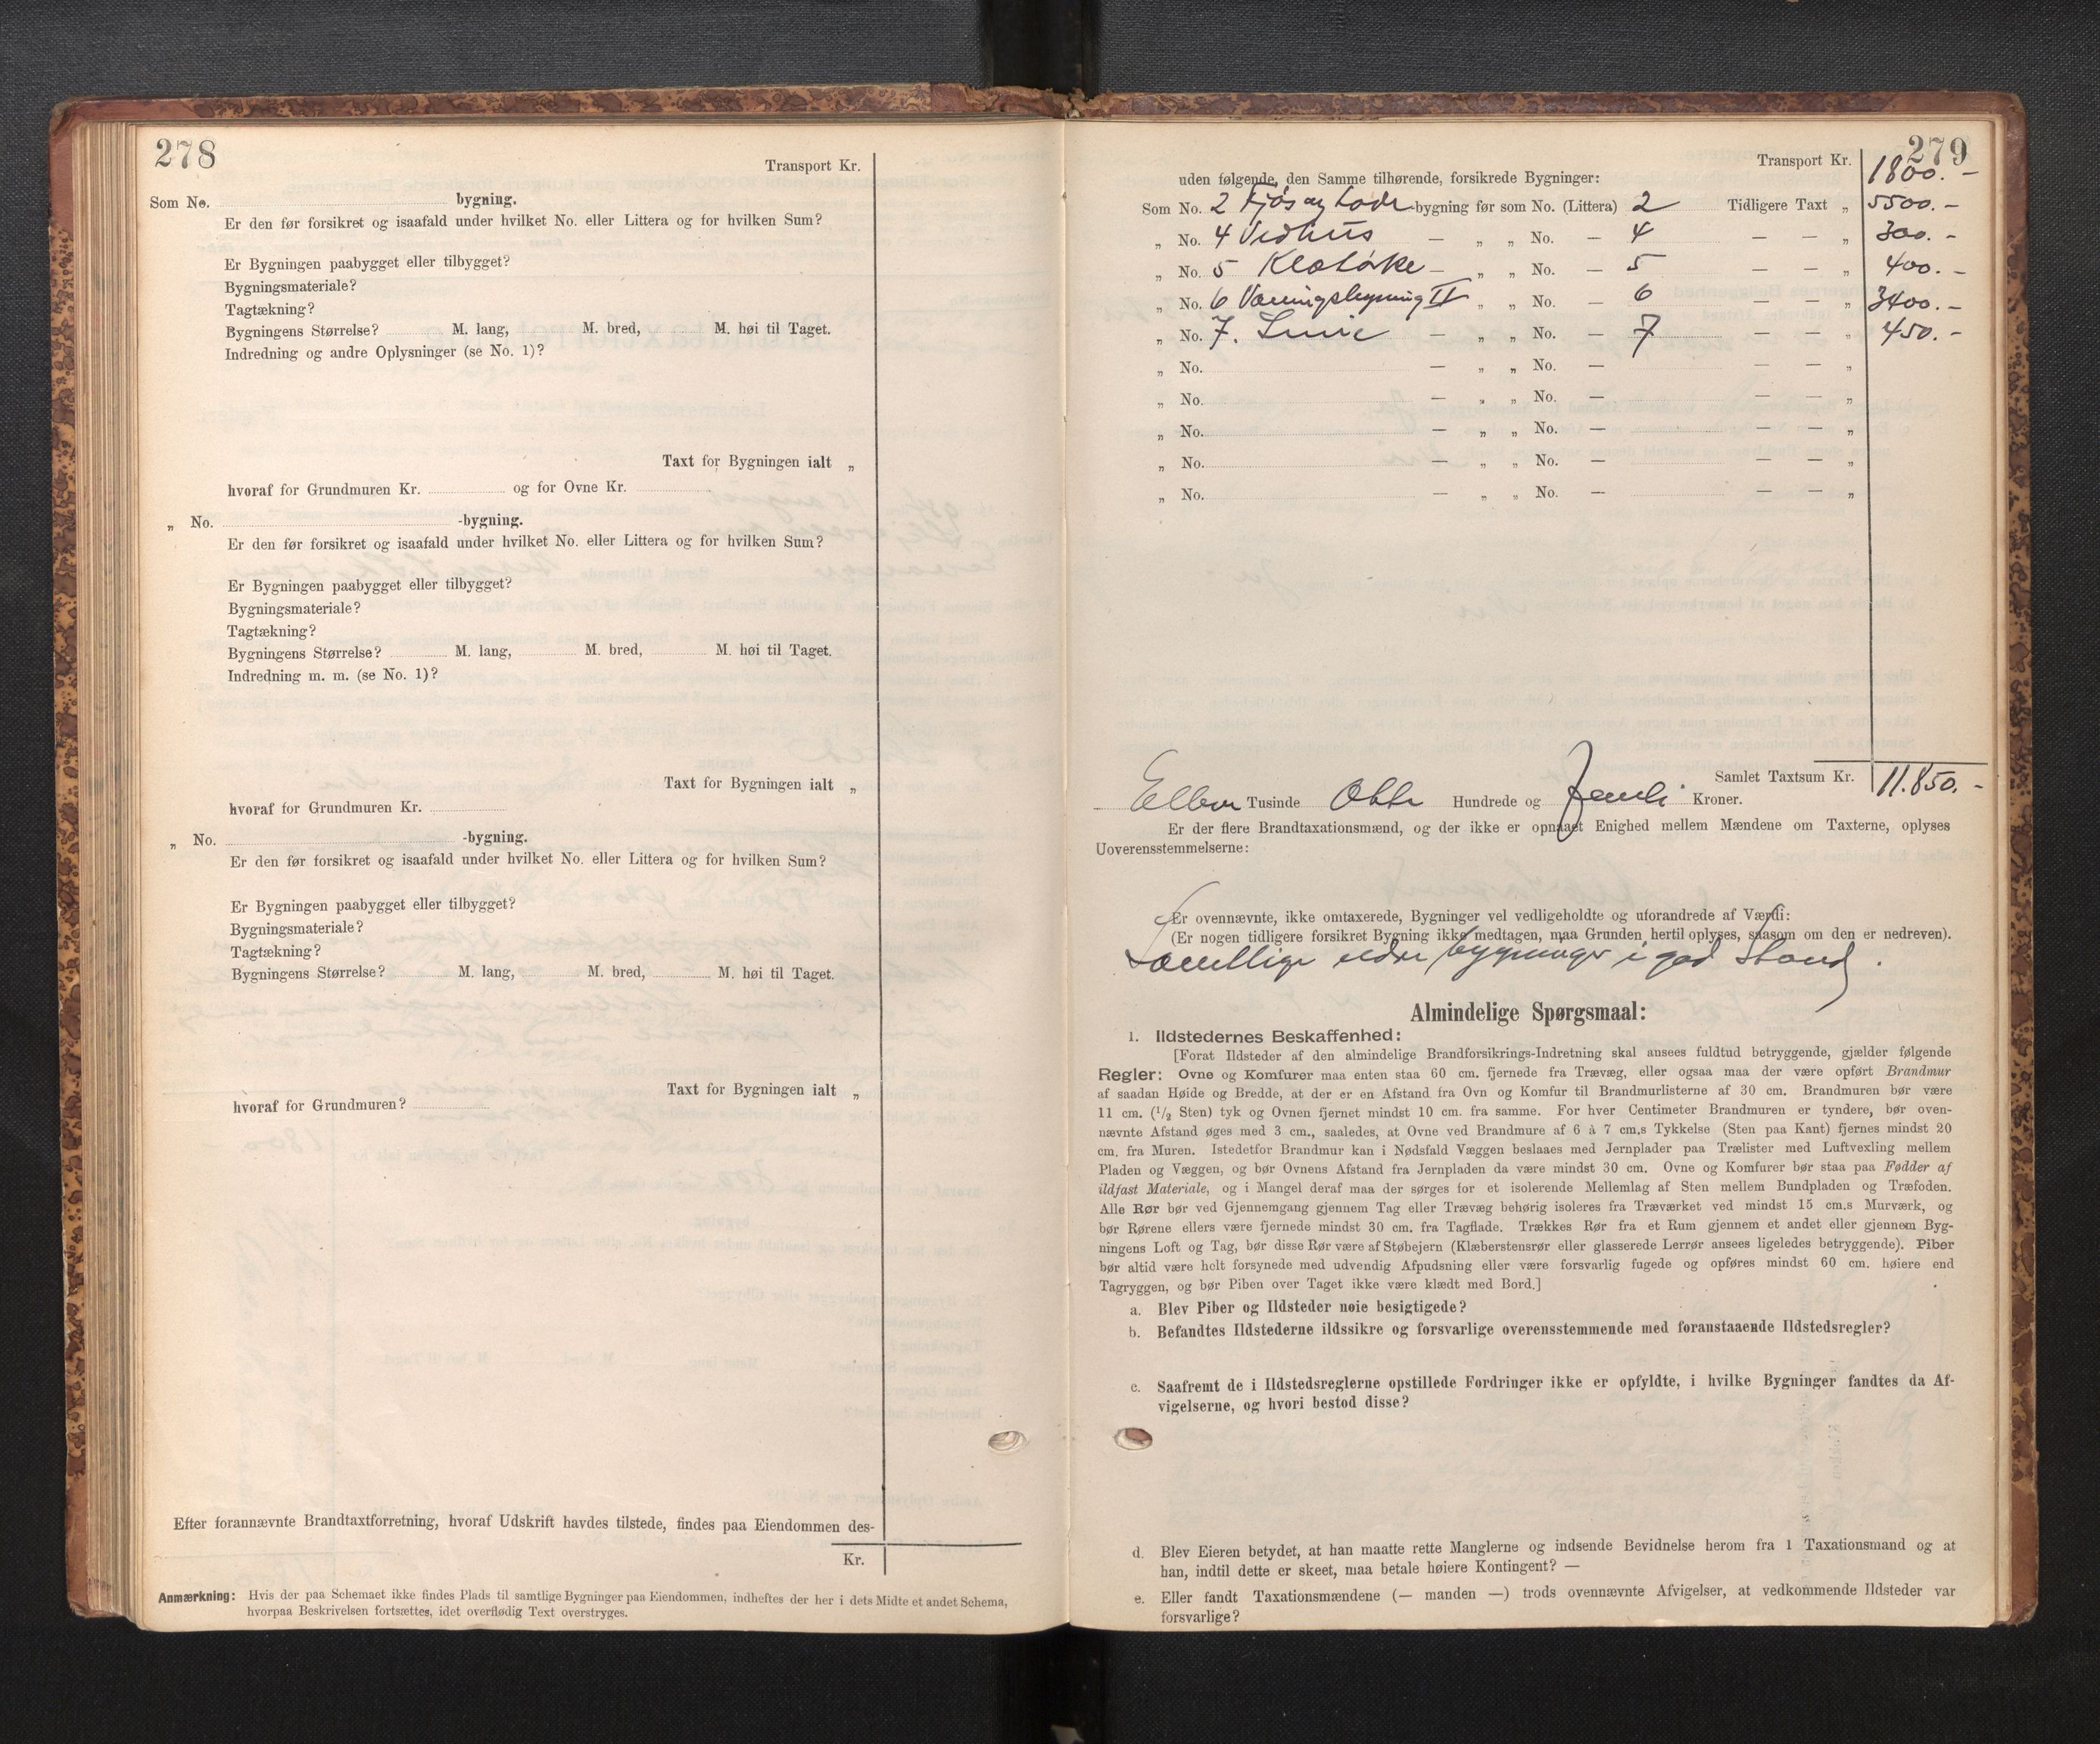 278
Transport Kr.
Som No. bygning.
Er den før forsikret og isaafald under hvilket No. eller Littera og for hvilken Sum?
Er Bygningen paabygget eller tilbygget?
Bygningsmateriale?
Tagtækning?
Bygningens Størrelse? M. lang, M. bred, M. høi til Taget.
Indredning og andre Oplysninger (se No. 1)?
Taxt for Bygningen ialt „
hvoraf for Grundmuren Kr. og for Ovne Kr.
„ No. -bygning.
Er den før forsikret og isaafald under hvilket No. eller Littera og for hvilken Sum?
Er Bygningen paabygget eller tilbygget?
Bygningsmateriale?
Tagtækning?
Bygningens Størrelse? M. lang, M. bred, M. høi til Taget.
Indredning m. m. (se No. 1)?
Taxt for Bygningen ialt „
hvoraf for Grundmuren Kr.
„ No. -bygning.
Er den før forsikret og isaafald under hvilket No. eller Littera og for hvilken Sum?
Er Bygningen paabygget eller tilbygget?
Bygningsmateriale?
Tagtækning?
Bygningens Størrelse? M. lang, M. bred, M. høi til Taget.
Taxt for Bygningen ialt „
hvoraf for Grundmuren?
Efter forannævnte Brandtaxtforretning, hvoraf Udskrift havdes tilstede, findes paa Eiendommen des-
Kr.
Anmærkning: Hvis der paa Schemaet ikke findes Plads til samtlige Bygninger paa Eiendommen, indheftes der her i dets Midte et andet Schema,
hvorpaa Beskrivelsen fortsættes, idet overflødig Text overstryges.
279
Transport Kr. 1800.-
uden følgende, den Samme tilhørende, forsikrede Bygninger:
Som No. 2 Fjøs og Lode-bygning før som No. (Littera) 2 Tidligere Taxt „ 5500.-
„ No. 4 Vedhus — „ „ No. — 4 — — „ 300.-
„ No. 5 — „ „ No. — 5 — — „ 400.-
„ No. 6 Vaaningsbygning II „ „ No. — 6 — — „ 3400.-
„ No. 7. Smie — „ „ No. — 7 — — „ 450.-
„ No. — „ „ No. — — — „
„ No. — „ „ No. — — — „
„ No. — „ „ No. — — — „
„ No. — „ „ No. — — — „
„ No. — „ „ No. — — — „
Samlet Taxtsum Kr. 11.850.-
Elleve Tusinde Otte Hundrede og femti Kroner.
Er der flere Brandtaxationsmænd, og der ikke er opnaaet Enighed mellem Mændene om Taxterne, oplyses
Uoverensstemmelserne:
Er ovennævnte, ikke omtaxerede, Bygninger vel vedligeholdte og uforandrede af Værdi:
(Er nogen tidligere forsikret Bygning ikke medtagen, maa Grunden hertil oplyses, saasom om den er nedreven).
Samtlige bygninger i god Stand.
Almindelige Spørgsmaal:
1. Ildstedernes Beskaffenhed:
[Forat Ildsteder af den almindelige Brandforsikrings-Indretning skal ansees fuldtud betryggende, gjælder følgende
Regler: Ovne og Komfurer maa enten staa 60 cm. fjernede fra Trævæg, eller ogsaa maa der være opført Brandmur
af saadan Høide og Bredde, at der er en Afstand fra Ovn og Komfur til Brandmurlisterne af 30 cm. Brandmuren bør være
11 cm. (1/2 Sten) tyk og Ovnen fjernet mindst 10 cm. fra samme. For hver Centimeter Brandmuren er tyndere, bør oven-
nævnte Afstand øges med 3 cm., saaledes, at Ovne ved Brandmure af 6 à 7 cm.s Tykkelse (Sten paa Kant) fjernes mindst 20
cm. fra Muren. Istedetfor Brandmur kan i Nødsfald Væggen beslaaes med Jernplader paa Trælister med Luftvexling mellem
Pladen og Væggen, og bør Ovnens Afstand fra Jernpladen da være mindst 30 cm. Ovne og Komfurer bør staa paa Fødder af
ildfast Materiale, og i Mangel deraf maa der sørges for et isolerende Mellemlag af Sten mellem Bundpladen og Træfoden.
Alle Rør bør ved Gjennemgang gjennem Tag eller Trævæg behørig isoleres fra Træværket ved mindst 15 cm.s Murværk, og
bør Rørene ellers være fjernede mindst 30 cm. fra Tagflade. Trækkes Rør fra et Rum gjennem et andet eller gjennem Byg-
ningens Loft og Tag, bør disse Rør være af Støbejern (Klæberstensrør eller glasserede Lerrør ansees ligeledes betryggende). Piber
bør altid være helt forsynede med udvendig Afpudsning eller være forsvarlig fugede og opføres mindst 60 cm. høiere end
Tagryggen, og bør Piben over Taget ikke være klædt med Bord.]
a. Blev Piber og Ildsteder nøie besigtigede?
b. Befandtes Ildstederne ildssikre og forsvarlige overensstemmende med foranstaaende Ildstedsregler?
c. Saafremt de i Ildstedsreglerne opstillede Fordringer ikke er opfyldte, i hvilke Bygninger fandtes da Af-
vigelserne, og hvori bestod disse?
d. Blev Eieren betydet, at han maatte rette Manglerne og indsende Bevidnelse herom fra 1 Taxationsmand og at
han, indtil dette er skeet, maa betale høiere Kontingent? —
e. Eller fandt Taxationsmændene (— manden —) trods ovennævnte Afvigelser, at vedkommende Ildsteder var
forsvarlige?